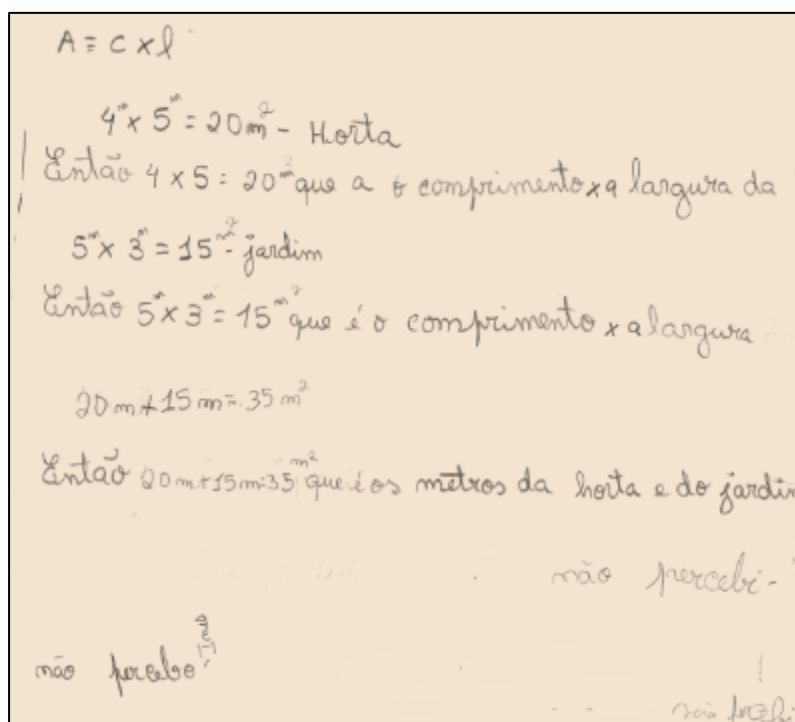 A = C x l
4m x 5m = 20m² - Horta
Então 4 x 5 = 20m² que a o comprimento x a largura da
5m x 3m = 15m² - jardim
Então 5m x 3m = 15m² que é o comprimento x a largura
20m + 15m = 35m²
Então 20m + 15m = 35m² que é os metros da horta e do jardim
não percebi -
não percebo